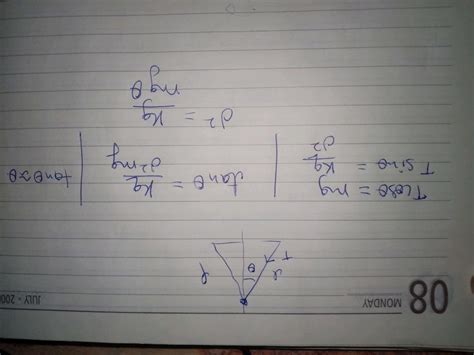 08 MONDAY JULY - 200
T θ
Tcosθ = mg
Tsinθ = Kq/d²
tanθ = Kq/d²mg
tanθ≈θ
d² = Kq/mgθ